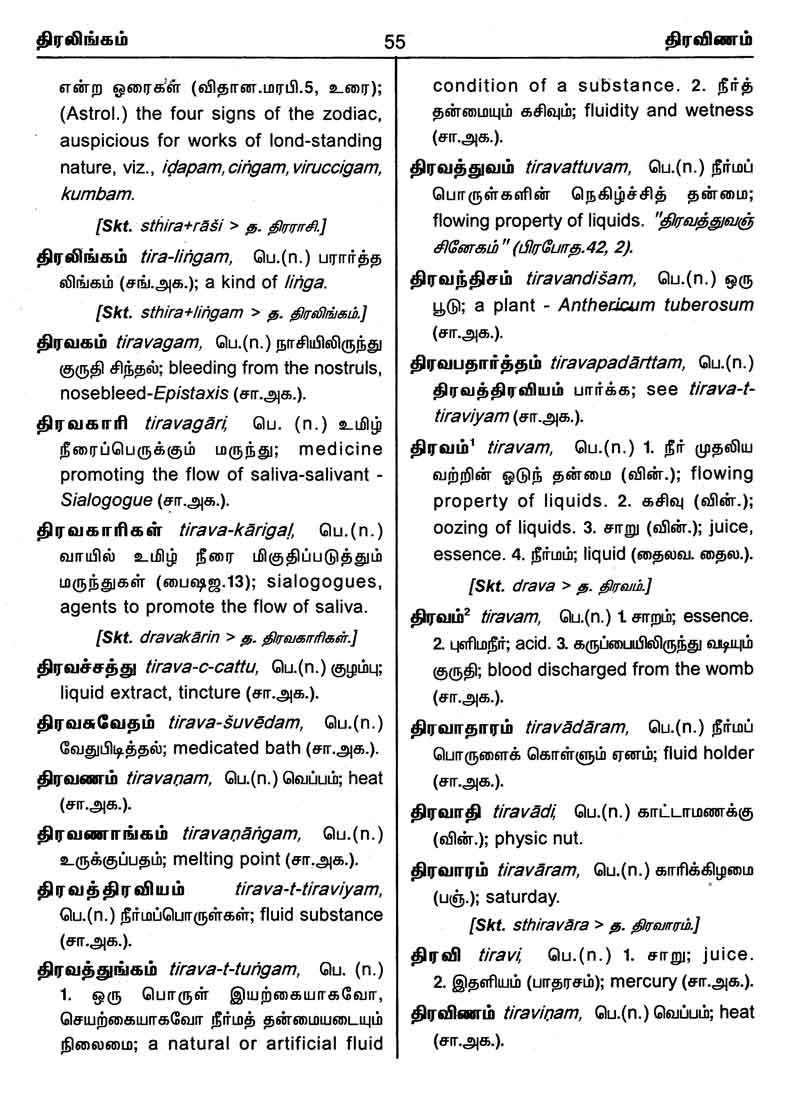 திரலிங்கம் 55 திரவிணம்
என்ற ஓரைகள் (விதான.மரபி.5, உரை);
(Astrol.) the four signs of the zodiac,
auspicious for works of lond-standing
nature, viz., iḍapam, ciṅgam, viruccigam,
kumbam.
[Skt. sthira+rāši > த. திரராசி.]
திரலிங்கம் tira-liṅgam, பெ.(n.) பரார்த்த
லிங்கம் (சங்.அக.); a kind of liṅga.
[Skt. sthira+liṅgam > த. திரலிங்கம்.]
திரவகம் tiravagam, பெ.(n.) நாசியிலிருந்து
குருதி சிந்தல்; bleeding from the nostruls,
nosebleed-Epistaxis (சா.அக.).
திரவகாரி tiravagāri, பெ. (n.) உமிழ்
நீரைப்பெருக்கும் மருந்து; medicine
promoting the flow of saliva-salivant -
Sialogogue (சா.அக.).
திரவகாரிகள் tirava-kārigaḷ, பெ.(n.)
வாயில் உமிழ் நீரை மிகுதிப்படுத்தும்
மருந்துகள் (பைஷஜ.13); sialogogues,
agents to promote the flow of saliva.
[Skt. dravakārin > த. திரவகாரிகள்.]
திரவச்சத்து tirava-c-cattu, பெ.(n.) குழம்பு;
liquid extract, tincture (சா.அக.).
திரவசுவேதம் tirava-šuvēdam, பெ.(n.)
வேதுபிடித்தல்; medicated bath (சா.அக.).
திரவணம் tiravaṇam, பெ.(n.) வெப்பம்; heat
(சா.அக.).
திரவணாங்கம் tiravaṇāṅgam, பெ.(n.)
உருக்குப்பதம்; melting point (சா.அக.).
திரவத்திரவியம் tirava-t-tiraviyam,
பெ.(n.) நீர்மப்பொருள்கள்; fluid substance
(சா.அக.).
திரவத்துங்கம் tirava-t-tuṅgam, பெ. (n.)
1. ஒரு பொருள் இயற்கையாகவோ,
செயற்கையாகவோ நீர்மத் தன்மையடையும்
நிலைமை; a natural or artificial fluid
condition of a substance. 2. நீர்த்
தன்மையும் கசிவும்; fluidity and wetness
(சா.அக.).
திரவத்துவம் tiravattuvam, பெ.(n.) நீர்மப்
பொருள்களின் நெகிழ்ச்சித் தன்மை;
flowing property of liquids. "திரவத்துவஞ்
சினேகம்" (பிரபோத.42, 2).
திரவந்திசம் tiravandišam, பெ.(n.) ஒரு
பூடு; a plant - Anthericum tuberosum
(சா.அக.).
திரவபதார்த்தம் tiravapadārttam, பெ.(n.)
திரவத்திரவியம் பார்க்க; see tirava-t-
tiraviyam (சா.அக.).
திரவம்¹ tiravam, பெ.(n.) 1. நீர் முதலிய
வற்றின் ஓடுந் தன்மை (வின்.); flowing
property of liquids. 2. கசிவு (வின்.);
oozing of liquids. 3. சாறு (வின்.); juice,
essence. 4. நீர்மம்; liquid (தைலவ. தைல.).
[Skt. drava > த. திரவம்.]
திரவம்² tiravam, பெ.(n.) 1. சாறம்; essence.
2. புளிமநீர்; acid. 3. கருப்பையிலிருந்து வடியும்
குருதி; blood discharged from the womb
(சா.அக.).
திரவாதாரம் tiravādāram, பெ.(n.) நீர்மப்
பொருளைக் கொள்ளும் ஏனம்; fluid holder
(சா.அக.).
திரவாதி tiravādi, பெ.(n.) காட்டாமணக்கு
(வின்.); physic nut.
திரவாரம் tiravāram, பெ.(n.) காரிக்கிழமை
(பஞ்.); saturday.
[Skt. sthiravāra > த. திரவாரம்.]
திரவி tiravi, பெ.(n.) 1. சாறு; juice.
2. இதளியம் (பாதரசம்); mercury (சா.அக.).
திரவிணம் tiraviṇam, பெ.(n.) வெப்பம்; heat
(சா.அக.).